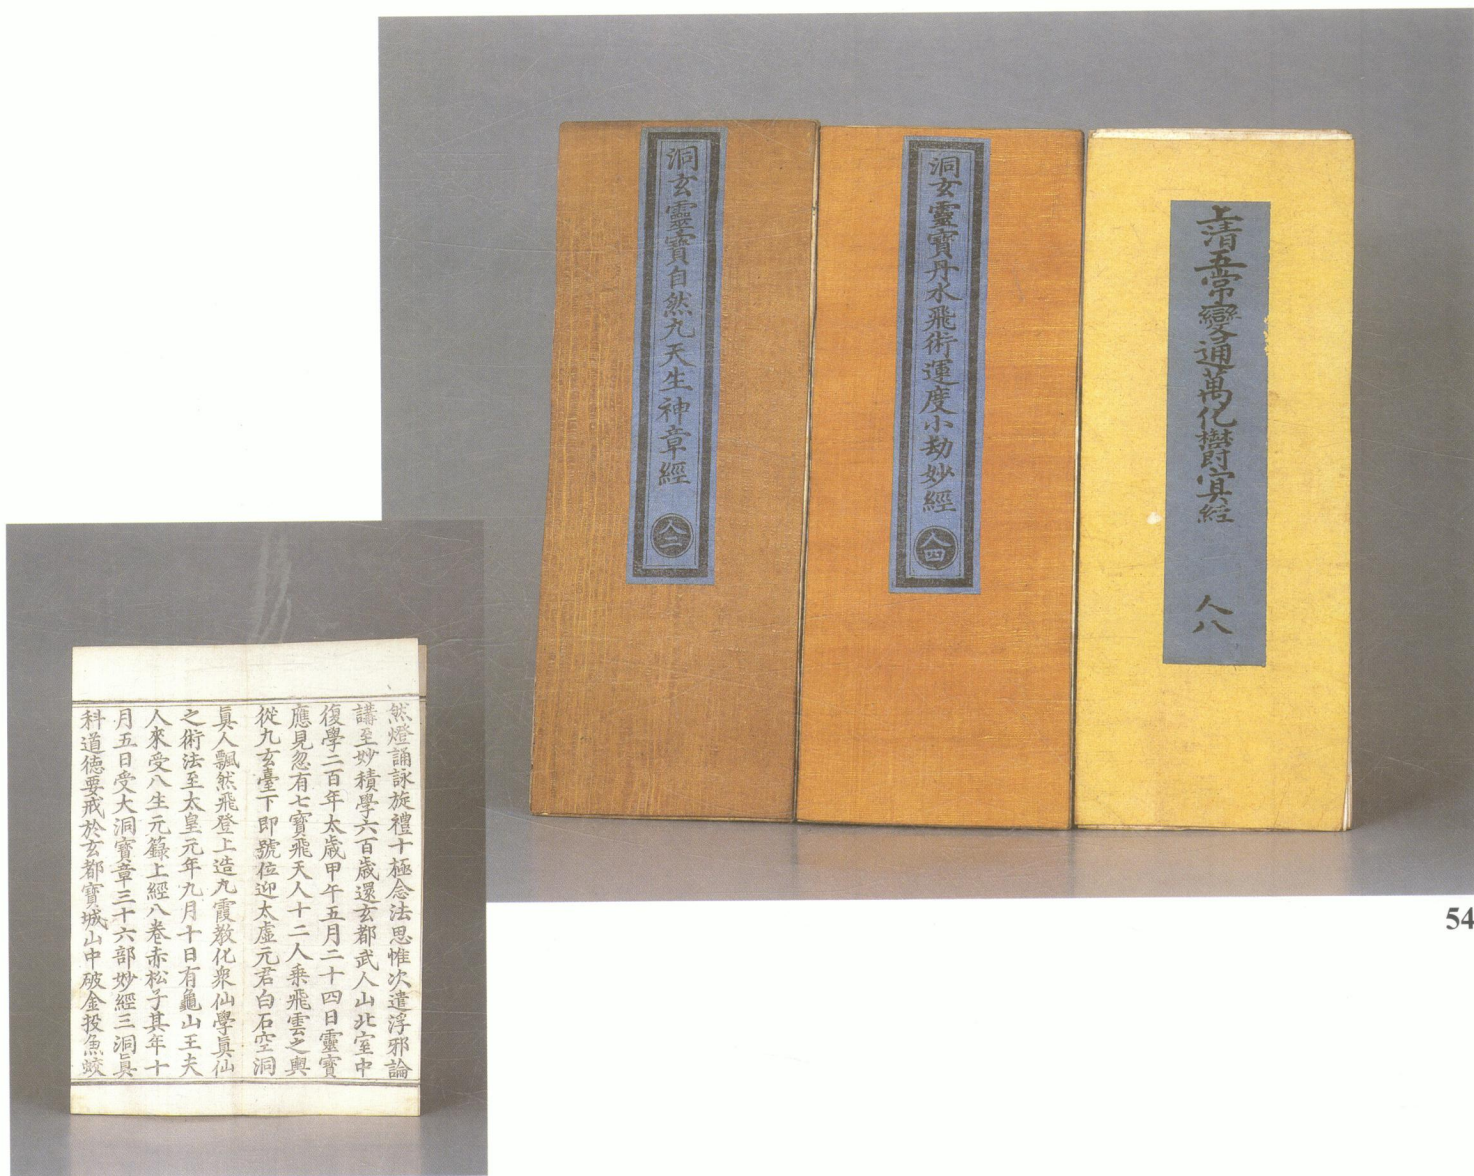 洞玄靈寶自然九天生神章經
人二
洞玄靈寶丹水飛術運度小劫妙經
人四
上清五常變通萬化鬱冥經
人八
然燈誦詠旋禮十極念法思惟次遣浮邪論
講至妙積學六百歲還玄都武人山北室中
復學二百年太歲甲午五月二十四日靈寶
應見忽有七寶飛天人十二人乗飛雲之輿
從九玄臺下即號位迎太虛元君白石空洞
眞人飄然飛登上造九霞教化衆仙學眞仙
之術法至太皇元年九月十日有龜山王夫
人來受八生元籙上經八卷赤松子其年十
月五日受大洞寶章三十六部妙經三洞眞
科道德要戒於玄都寶城山中破金投魚蛟
54